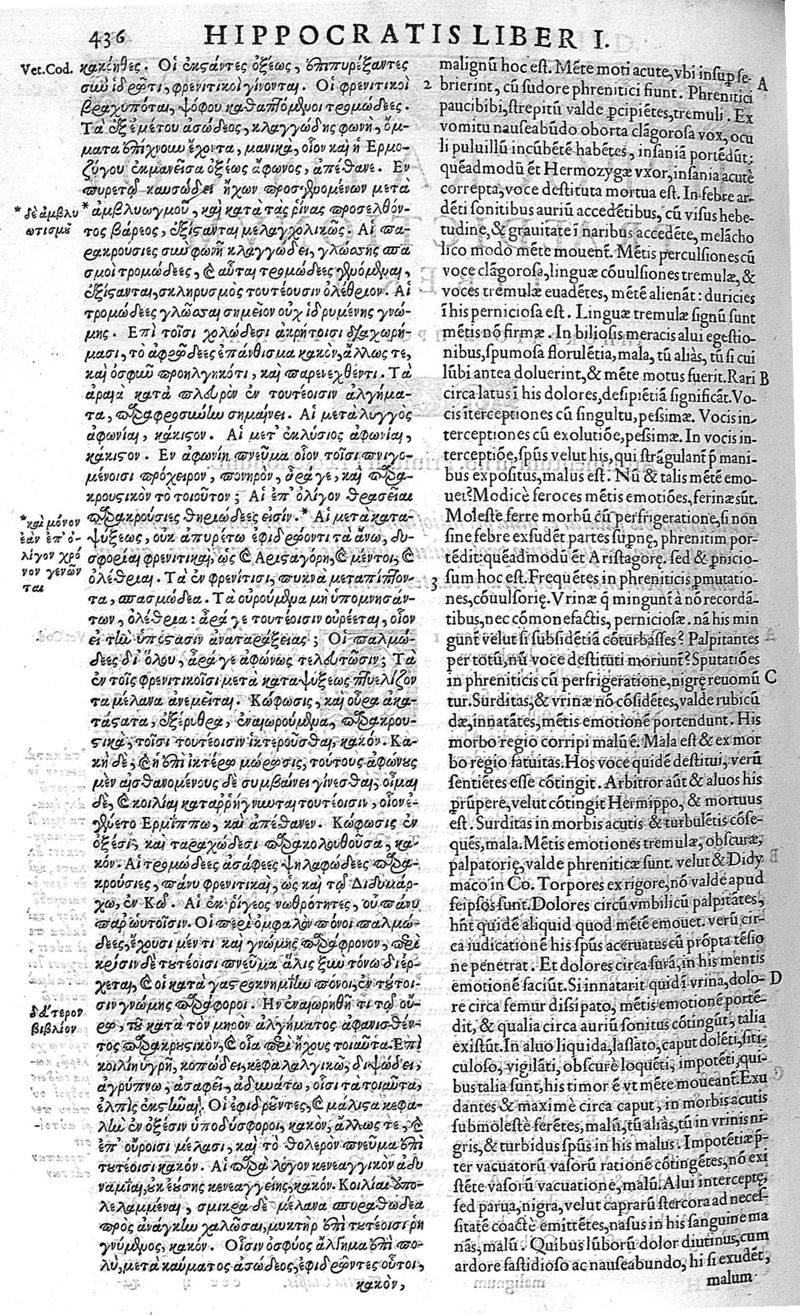 436 HIPPOCRATIS LIBER I.
Vet. Cod.
κακοήθες. Οἱ ἐκςάντες ὀξέως, ἐπιπυρέξαντες
σιωὶδρῶτι, φρενιτικοὶ γίνονται. Οἱ φρενιτικοὶ
βραχυπόται, ψόφου καθαπτόμενοι τρομώδεες.
Τὰ ἐξ ἐμέτου ἀσώδεος, κλαγγώδης φωνὴ, ὄμ-
ματα ἐπίχνουν ἔχοντα, μανικὰ, οἷον καὶ ἡ Ἑρμο-
ζύγου ἐκμανεῖσα ὀξέως ἄφωνος, ἀπέθανε. Ἐν
πυρετῷ καυσώδει ἤχων προσγενομένων μετὰ
*δὲ ἀμβλυ
ωτισμοῦ
*ἀμβλυωγμοῦ, καὶ κατὰ τὰς ῥῖνας προσελθόν-
τος βάρεος, ἐξίςανται μελαγχολικῶς. Αἱ πα-
ρακρούσιες σὺν φωνῇ κλαγγώδει, γλώσσης σπα
σμοὶ τρομώδεες, καὶ αὗται τρομώδεες γενόμεναι,
ἐξίςανται, σκληρυσμὸς τουτέουσιν ὀλέθριον. Αἱ
τρομώδεες γλῶσσαι σημεῖον οὐχ ἱδρυμένης γνώ-
μης. Ἐπὶ τοῖσι χολώδεσι ἀκρήτοισι διαχωρή-
μασι, τὸ ἀφρῶδες ἐπάνθισμα κακὸν, ἄλλως τε,
καὶ ὀσφὺν προηλγηκότι, καὶ παρενεχθέντι. Τὰ
ἀραιὰ κατὰ πλευρὸν ἐν τουτέοισιν ἀλγήμα-
τα, παραφροσύνην σημαίνει. Αἱ μετὰ λυγγὸς
ἀφωνίαι, κάκιςον. Αἱ μετ' ἐκλύσιος ἀφωνίαι,
κάκιςον. Ἐν ἀφωνίῃ πνεῦμα οἷον τοῖσι πνιγο-
μένοισι πρόχειρον, πονηρὸν, ἆρά γε, καὶ παρα-
κρουςικὸν τὸ τοιοῦτον; Αἱ ἐπ' ὀλίγον θρασεῖαι
*καὶ μόνον
ἐὰν ἐπ' ὀ-
λίγον χρό
νον γενῶν
ται
παρακρούσιες θηριώδεές εἰσιν.* Αἱ μετὰ κατα-
ψύξεως, οὐκ ἀπυρέτῳ ἐφιδρῶντι τὰ ἄνω, δυ-
σφορίαι φρενιτικαὶ, ὡς καὶ Ἀριςαγόρῃ, καὶ μέντοι, καὶ
ὀλέθριαι. Τὰ ἐν φρενίτισι, πυκνὰ μεταπίπτον-
τα, σπασμώδεα. Τὰ οὐρούμενα μὴ ὑπομνησάν-
των, ὀλέθρια: ἆρά γε τουτέοισιν οὐρέεται, οἷον
εἰ τὴν ὑπόςασιν ἀναταράξειας; Οἱ παλμώ-
δεες δι' ὅλου, ἆρά γε ἀφώνως τελευτῶσιν; Τὰ
ἐν τοῖς φρενιτικοῖσι μετὰ καταψύξεως πτυελίζον
τα μέλανα ἀνεμεῖται. Κώφωσις, καὶ οὖρα ἀκα-
τάςατα, ἐξέρυθρα, ἐναιωρούμενα, παρακρου-
ςικὰ, τοῖσι τουτέοισιν ἰκτεροῦσθαι, κακόν. Κα-
κὴ δὲ, καὶ ἡ ἐπὶ ἰκτέρῳ μώρωσις, τούτους ἀφώνους
μὲν αἰσθανομένους δὲ συμβαίνει γίνεσθαι, οἶμαι
δὲ, καὶ κοιλίαι καταρρήγνυνται τουτέοισιν, οἷον ἐ-
γένετο Ἑρμίππῳ, καὶ ἀπέθανεν. Κώφωσις ἐν
ὀξέσι, καὶ ταραχώδεσι παρακολουθοῦσα, κα-
κόν. Αἱ τρομώδεες ἀσαφέες ψηλαφώδεες παρα-
κρούσιες, πάνυ φρενιτικαὶ, ὡς καὶ τῷ Διδυμάρ-
χῳ, ἐν Κῷ. Αἱ ἐκ ῥίγεος νωθρότητες, οὐ πάνυ
παρ' ἑωυτοῖσιν. Οἱ περὶ ὀμφαλὸν πόνοι παλμώ-
δεες, ἔχουσι μέν τι καὶ γνώμης παράφρονον, περὶ
κρίσιν δὲ τουτέοισι πνεῦμα ἅλις ξὺν τόνῳ διέρ-
χεται, καὶ οἱ κατὰ γαςροκνημίην πόνοι, ἐν τούτοι-
σιν γνώμης παράφοροι. Ἢν ἐναιωρηθῇ τι τῷ οὔ-
δεύτερον
βιβλίον
ρῳ, τοῦ κατὰ τὸν μηρὸν ἀλγήματος ἀφανισθέν-
τος παρακρουςικὸν, καὶ οἷα περὶ ἤχους τοιαῦτα. Ἐπὶ
κοιλίῃ ὑγρῇ, κοπώδει, κεφαλαλγικῷ, διψώδει,
ἀγρύπνῳ, ἀσαφεῖ, ἀδυνάτῳ, οἷσι τὰ τοιαῦτα,
ἐλπὶς ἐκςῆναι. Οἱ ἐφιδρῶντες, καὶ μάλιςα κεφα-
λὴν ἐν ὀξέσιν ὑποδύσφοροι, κακὸν, ἄλλως τε, καὶ
ἐπ' οὔροισι μέλασι, καὶ τὸ θολερὸν πνεῦμα ἐπὶ
τουτέοισι κακόν. Αἱ παρὰ λόγον κενεαγγικὸν ἀδυ
ναμίαι, οὐκ ἐούσης κενεαγγείης, κακόν. Κοιλίαι ἀπο-
λελαμμέναι, σμικρὰ δὲ μέλανα σπυραθώδεα
πρὸς ἀνάγκην χαλῶσαι, μυκτὴρ ἐπὶ τουτέοισι ῥη
γνύμενος, κακόν. Οἷσιν ὀσφύος ἄλγημα ἐπὶ πο-
λὺ, μετὰ καύματος ἀσώδεος, ἐφιδρῶντες οὗτοι,
κακὸν,
malignũ hoc est. Mẽte moti acute, vbi insup se-
brierint, cũ sudore phrenitici fiunt. Phrenitici A
2 paucibibi, strepitũ valde ꝑcipiẽtes, tremuli. Ex
vomitu nauseabũdo oborta clãgorosa vox, ocu
li puluillũ incũbẽtẽ habẽtes, insaniã portẽdũt:
quẽadmodũ ẽt Hermozygæ vxor, insania acutè
correpta, voce destituta mortua est. In febre ar-
dẽti sonitibus auriũ accedẽtibus, cũ visus hebe-
tudine, & grauitate ĩ naribus accedẽte, melãcho
lico modo mẽte mouent. Mẽtis perculsiones cũ
voce clãgorosa, linguæ cõuulsiones tremulæ, &
voces tremulæ euadẽtes, mẽtẽ alienãt: duricies
ĩ his perniciosa est. Linguæ tremulæ signũ sunt
mẽtis nõ firmæ. In biliosis meracis alui egestio-
nibus, spumosa florulẽtia, mala, tũ aliàs, tũ si cui
lũbi antea doluerint, & mẽte motus fuerit. Rari B
circa latus ĩ his dolores, desipiẽtiã significãt. Vo-
cis ĩterceptiones cũ singultu, pessimæ. Vocis in-
terceptiones cũ exolutiõe, pessimæ. In vocis in-
terceptiõe, spũs velut his, qui strãgulant ꝑ mani-
bus expositus, malus est. Nũ & talis mẽtẽ emo-
uet? Modicè feroces mẽtis emotiões, ferinæ sũt.
Moleste ferre morbũ cũ perfrigeratione, si non
sine febre exsudẽt partes supnę, phrenitim por-
tẽdit: quẽadmodũ ẽt Aristagorę. sed & ꝑnicio-
3 sum hoc est. Frequẽtes in phreniticis ꝑmutatio-
nes, cõuulsorię. Vrinæ q̃ mingunt à nõ recordã-
tibus, nec cõmonefactis, perniciosæ. nã his min
gunt velut si subsidẽtiã cõturbasses? Palpitantes
per totũ, nũ voce destituti moriunt? Sputatiões
in phreniticis cũ perfrigeratione, nigrę reuomũ C
tur. Surditas, & vrinæ nõ cõsidẽtes, valde rubicũ
dæ, innatãtes, mẽtis emotionẽ portendunt. His
morbo regio corripi malũ ẽ. Mala est & ex mor
bo regio fatuitas. Hos voce quidẽ destitui, verũ
sentiẽtes esse cõtingit. Arbitror aũt & aluos his
prũpere, velut cõtingit Hermippo, & mortuus
est. Surditas in morbis acutis & turbulẽtis cõse-
quẽs, mala. Mẽtis emotiones tremulæ, obscuræ,
palpatorię, valde phreniticæ sunt. velut & Didy
maco in Co. Torpores ex rigore, nõ valde apud
seipsos sunt. Dolores circũ vmbilicũ palpitãtes,
hñt quidẽ aliquid quod mẽtẽ emouet. verũ cir-
ca iudicationẽ his spũs aceruatus cũ prõpta tẽsiõ
ne penetrat. Et dolores circa surã, in his mentis
emotionẽ faciũt. Si innatarit quid ĩ vrina, dolo- D
re circa femur dissipato, mẽtis emotionẽ portẽ-
dit, & qualia circa auriũ sonitus cõtingũt, talia
existũt. In aluo liquida, lassato, caput dolẽti, siti-
culoso, vigilãti, obscurè loquẽti, impotẽti, qui-
bus talia sunt, his timor ẽ vt mẽte moueant. Exu
dantes & maximè circa caput, in morbis acutis
submolestè ferẽtes, malũ, tũ aliàs, tũ in vrinis ni-
gris, & turbidus spũs in his malus. Impotẽtiæ p̃-
ter vacuatorũ vasorũ rationẽ cõtingẽtes, nõ exi
stẽte vasorũ vacuatione, malũ. Alui interceptę,
sed parua, nigra, velut caprarũ stercora ad neces-
sitatẽ coactè emittẽtes, nasus in his sanguinem ma
nãs, malũ. Quibus lũborũ dolor diutinus, cum
ardore fastidioso ac nauseabundo, hi si exudẽt,
malum